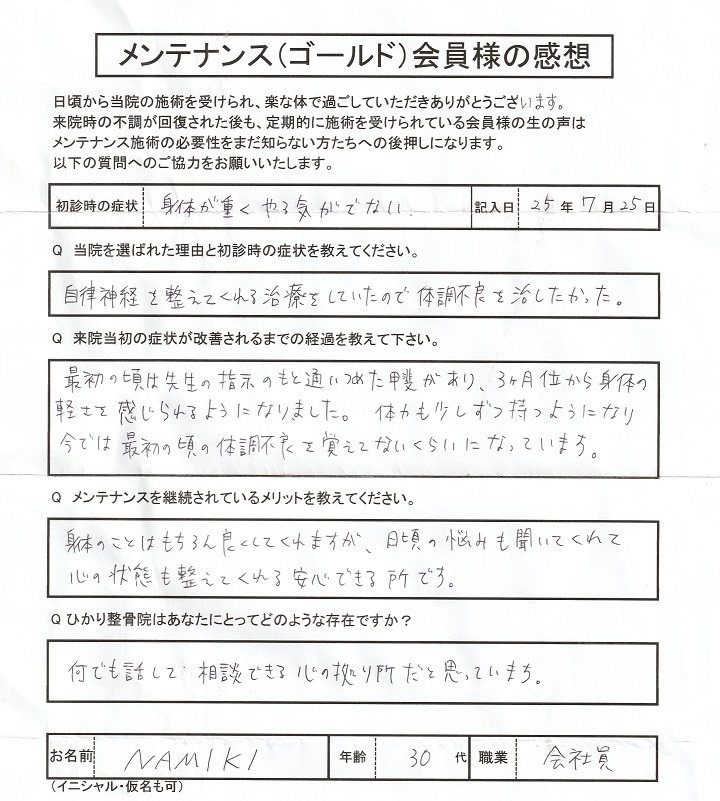 メンテナンス（ゴールド）会員様の感想
日頃から当院の施術を受けられ、楽な体で過ごしていただきありがとうございます。
来院時の不調が回復された後も、定期的に施術を受けられている会員様の生の声は
メンテナンス施術の必要性をまだ知らない方たちへの後押しになります。
以下の質問へのご協力をお願いいたします。
初診時の症状 身体が重くやる気がでない. 記入日 25年 7月 25日
Q 当院を選ばれた理由と初診時の症状を教えてください。
自律神経を整えてくれる治療をしていたので体調不良を治したかった。
Q 来院当初の症状が改善されるまでの経過を教えて下さい。
最初の頃は先生の指示のもと通いつめた甲斐があり、3ヶ月位から身体の
軽さを感じられるようになりました。 体力も少しずつ持つようになり
今では最初の頃の体調不良を覚えてないくらいになっています。
Q メンテナンスを継続されているメリットを教えてください。
身体のことはもちろん良くしてくれますが、日頃の悩みも聞いてくれて
心の状態も整えてくれる安心できる所です。
Q ひかり整骨院はあなたにとってどのような存在ですか？
何でも話して 相談できる心の拠り所だと思っています。
お名前 NAMIKI 年齢 30 代 職業 会社員
（イニシャル・仮名も可）